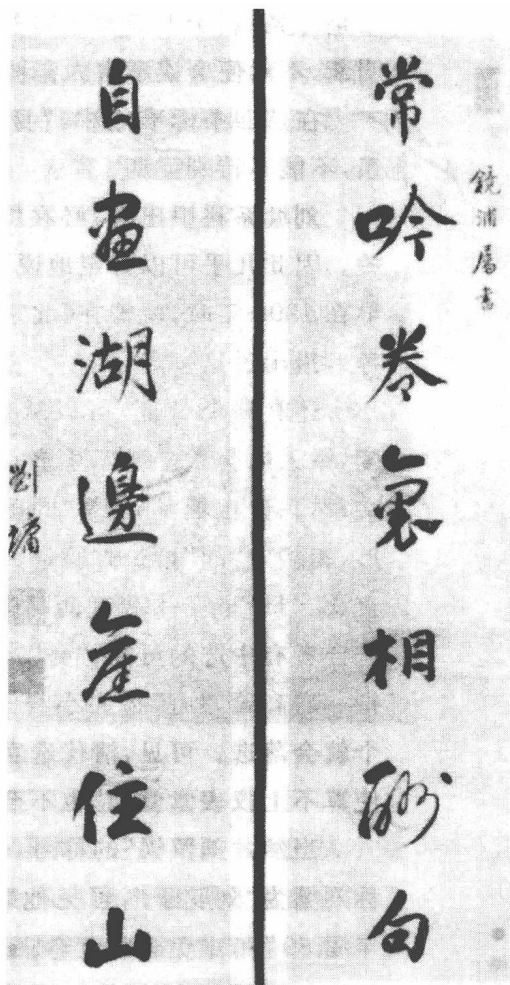 鏡浦屬書
常吟卷裏相酬句
自畫湖邊舊住山
劉墉